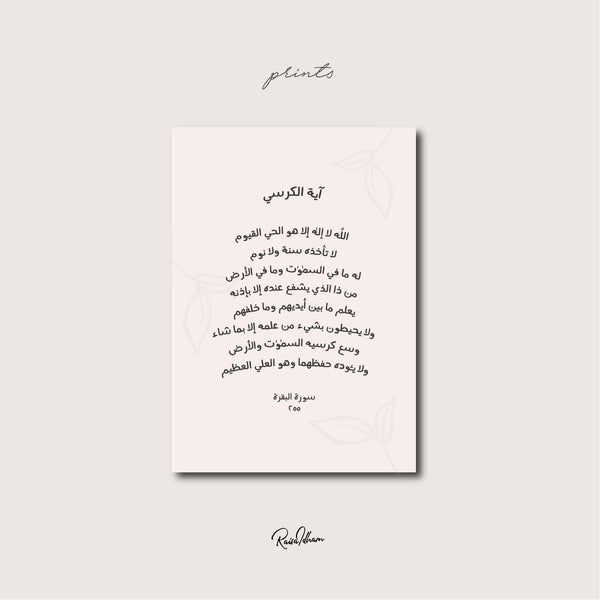 prints
آية الكرسي
الله لا إله إلا هو الحي القيوم
لا تأخذه سنة ولا نوم
له ما في السموت وما في الأرض
من ذا الذي يشفع عنده إلا بإذنه
يعلم ما بين أيديهم وما خلفهم
ولا يحيطون بشيء من علمه إلا بما شاء
وسع كرسيه السموت والأرض
ولا يئوده حفظهما وهو العلي العظيم
سورة البقرة
٢٥٥
RaisaIdham